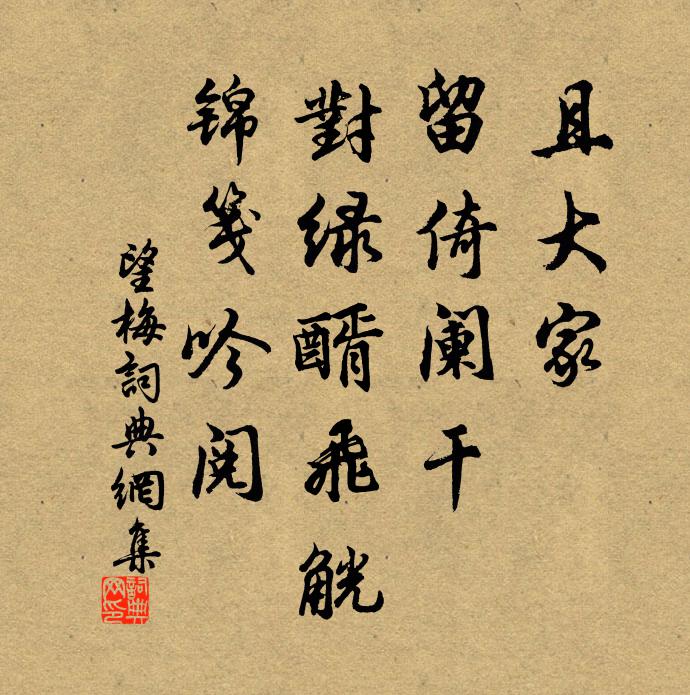 且大家
留倚阑干
對绿醑飛觥
锦箋吟阅
望梅詞典網集
詞典网印